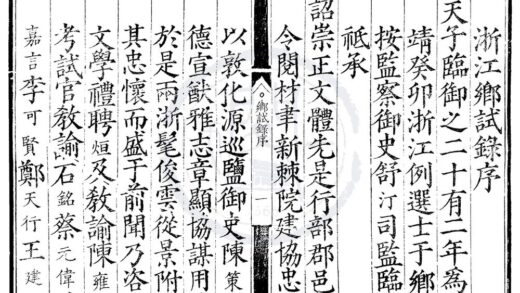 浙江鄉試錄序
天子臨御之二十有二年為
靖癸卯浙江例選士于鄉
按監察御史舒汀司監臨
祗承
詔崇正文體先是行部郡邑
令閱材聿新棘院建協忠
鄉試錄序 一
以敦化源巡鹽御史陳策
德宣猷雅志章顯協謀用
於是兩浙髦俊雲從景附
其忠懷而盛于前聞乃咨
文學禮聘烜及教諭陳雍
考試官教諭石銘蔡元偉
嘉言李可賢鄭天行王建